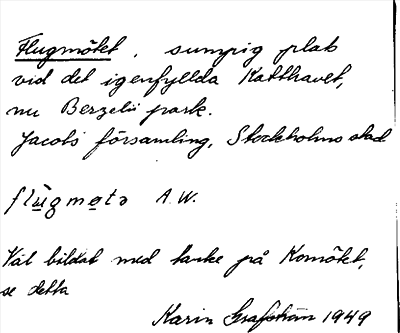 Flugmötet, sumpig plats
vid det igenfyllda Katthavet,
nu Berzelii park.
Jacobs församling, Stockholms stad
flùgmøtə A.W.
Väl bildat med tanke på Komötet,
se detta
Karin Grafström 1949